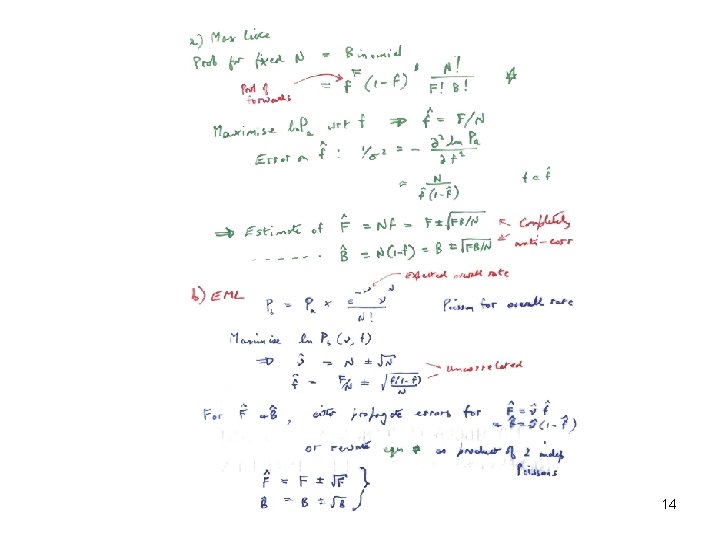 a) Max like
Prob for fixed N = Binomial
= f^F (1-f)^B N!/F! B! *
Prob of forwards
Maximise ln Pa wrt f ⇒ f̂ = F/N
Error on f̂ : 1/σ² = - ∂² ln Pa/∂f²
= N/f̂(1-f̂) f = f̂
⇒ Estimate of F̂ = Nf̂ = F ± √FB/N ← Completely
------. B̂ = N(1-f̂) = B ± √FB/N ← anti-corr
b) EML expected overall rate
Pb = Pa × e^-ν ν^N/N! Poisson for overall rate
Maximise ln Pb (ν, f)
⇒ ν̂ = N ± √N
f̂ = F/N ± √f̂(1-f̂)/N uncorrelated
For F̂ + B̂, either propagate errors for F̂ = ν̂ f̂
B̂ = ν̂(1-f̂)
or rewrite eqn * as product of 2 indep
Poissons
F̂ = F ± √F
B̂ = B ± √B
14